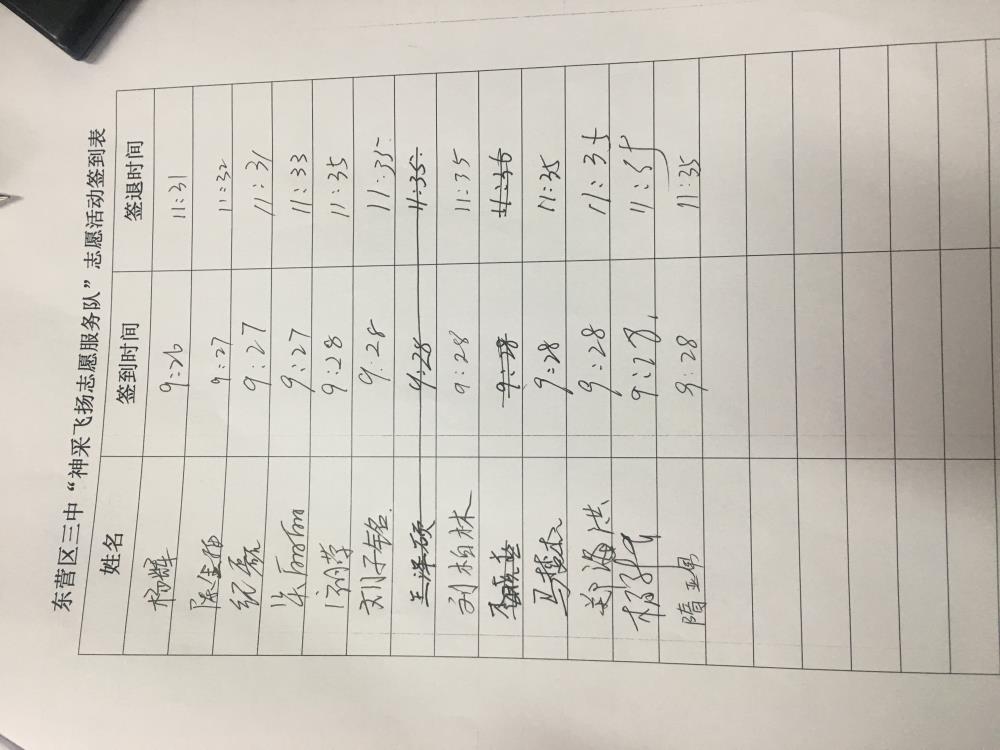 东营区三中“神采飞扬志愿服务队”志愿活动签到表
姓名 签到时间 签退时间
杨辉 9:26 11:31
9:27 11:32
纪磊 9:27 11:31
9:27 11:33
9:28 11:35
刘子铭 9:28 11:35
王泽硕 9:28 11:35
刘柏林 9:28 11:35
9:28 11:36
马梦杰 9:28 11:35
9:28 11:35
9:28 11:35
隋 9:28 11:35